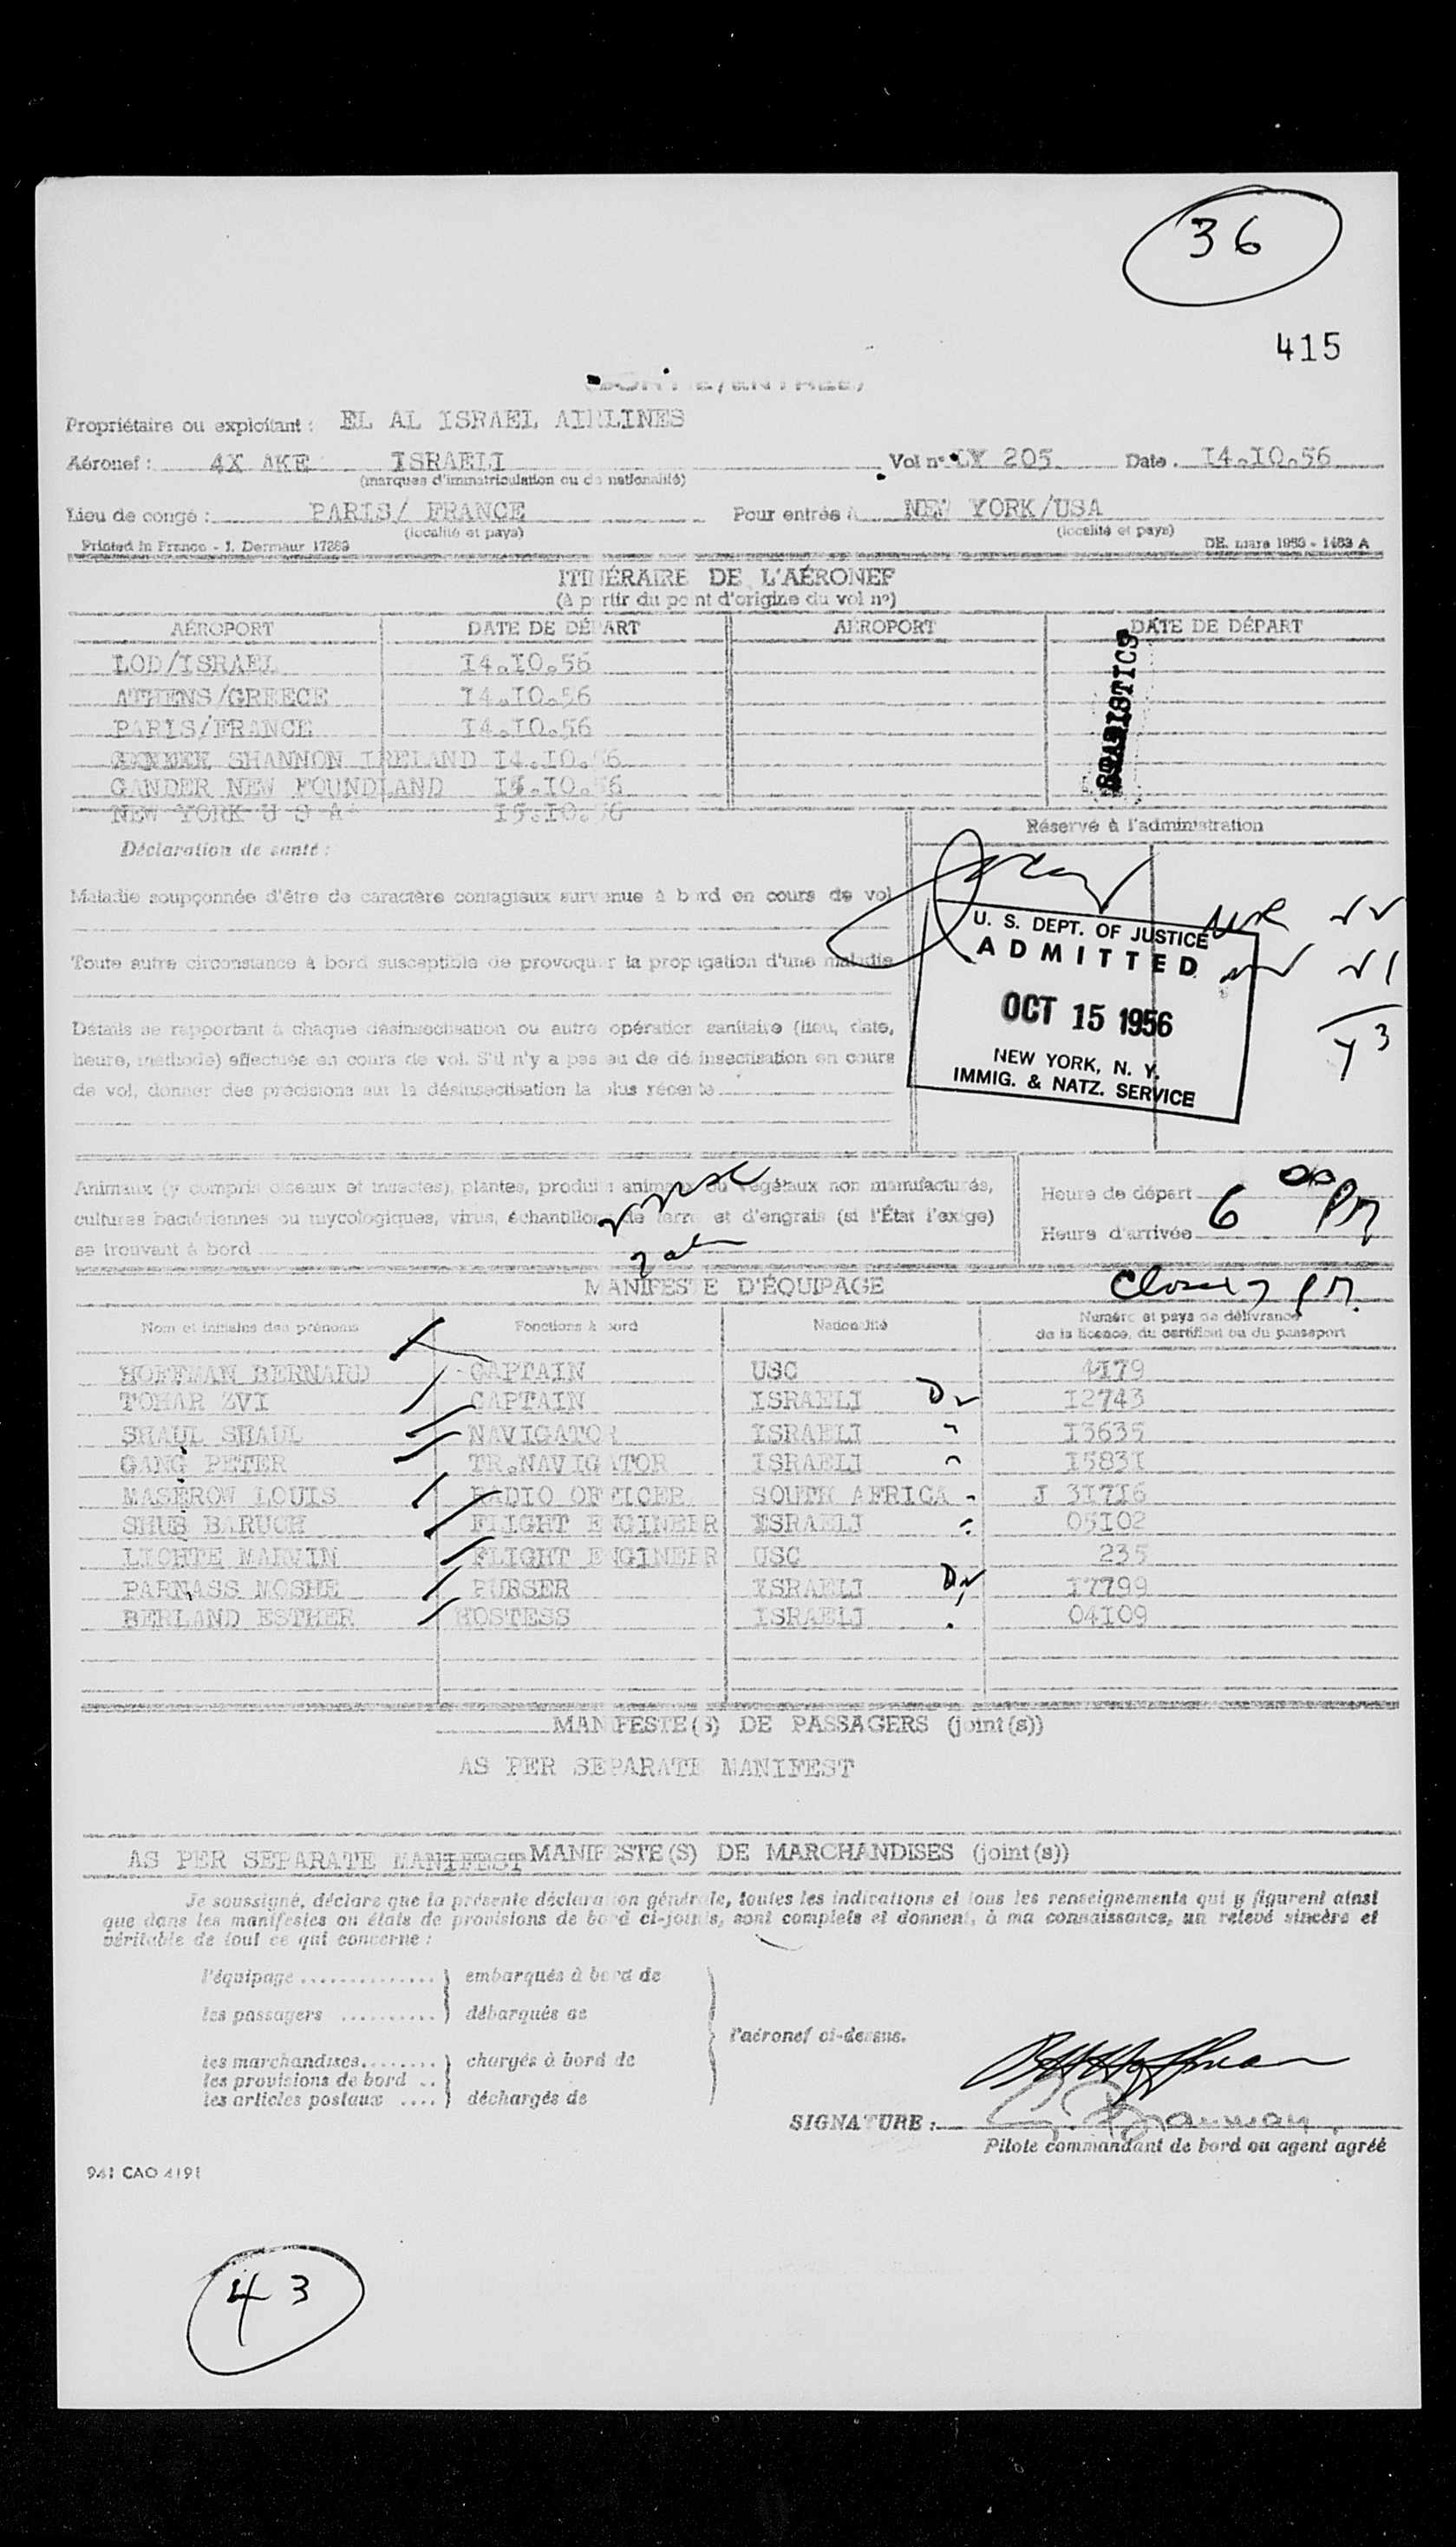 36
415
Propriétaire ou exploitant : EL AL ISRAEL AIRLINES
Aéronef : 4X AKE ISRAELI Vol nº LY 205 Date. 14.10.56
(marques d'immatriculation ou de nationalité)
Lieu de congé : PARIS/ FRANCE Pour entrée à NEW YORK/USA
(localité et pays) (localité et pays)
Printed in France - J. Dermaur 17263 DE. mars 1956 - 1463 A
ITINÉRAIRE DE L'AÉRONEF
(à partir du point d'origine du vol nº)
AÉROPORT DATE DE DÉPART AÉROPORT DATE DE DÉPART
LOD/ISRAEL 14.10.56
ATHENS/GREECE 14.10.56
PARIS/FRANCE 14.10.56
SHANNON IRELAND 14.10.56
GANDER NEW FOUNDLAND 15.10.56
NEW YORK U S A 15.10.56
STATISTICS
Réservé à l'administration
Déclaration de santé :
Maladie soupçonnée d'être de caractère contagieux survenue à bord en cours de vol
Toute autre circonstance à bord susceptible de provoquer la propagation d'une maladie
Détails se rapportant à chaque désinsectisation ou autre opération sanitaire (lieu, date,
heure, méthode) effectuée en cours de vol. S'il n'y a pas eu de désinsectisation en cours
de vol, donner des précisions sur la désinsectisation la plus récente
U. S. DEPT. OF JUSTICE
ADMITTED
OCT 15 1956
NEW YORK, N. Y.
IMMIG. & NATZ. SERVICE
Animaux (y compris oiseaux et insectes), plantes, produits animaux ou végétaux non manufacturés,
cultures bactériennes ou mycologiques, virus, échantillons de terre et d'engrais (si l'État l'exige)
se trouvant à bord
Heure de départ
Heure d'arrivée 6 00 PM
MANIFESTE D'ÉQUIPAGE
Nom et initiales des prénoms Fonctions à bord Nationalité Numéro et pays de délivrance
de la licence, du certificat ou du passeport
HOFFMAN BERNARD CAPTAIN USC 4179
TOHAR ZVI CAPTAIN ISRAELI 12743
SHAUL SHAUL NAVIGATOR ISRAELI 13635
GANG PETER TR.NAVIGATOR ISRAELI 15831
MASEROW LOUIS RADIO OFFICER SOUTH AFRICA J 31716
SHUB BARUCH FLIGHT ENGINEER ISRAELI 05102
LICHTE MARVIN FLIGHT ENGINEER USC 235
PARNASS MOSHE PURSER ISRAELI 17799
BERLAND ESTHER HOSTESS ISRAELI 04109
MANIFESTE(S) DE PASSAGERS (joint(s))
AS PER SEPARATE MANIFEST
AS PER SEPARATE MANIFEST MANIFESTE(S) DE MARCHANDISES (joint(s))
Je soussigné, déclare que la présente déclaration générale, toutes les indications et tous les renseignements qui y figurent ainsi
que dans les manifestes ou états de provisions de bord ci-joints, sont complets et donnent, à ma connaissance, un relevé sincère et
véritable de tout ce qui concerne :
l'équipage .............. } embarqués à bord de
les passagers .......... } débarqués de
l'aéronef ci-dessus.
les marchandises........ } chargés à bord de
les provisions de bord ..
les articles postaux .... } déchargés de
SIGNATURE :
Pilote commandant de bord ou agent agréé
941 CAO 4191
43